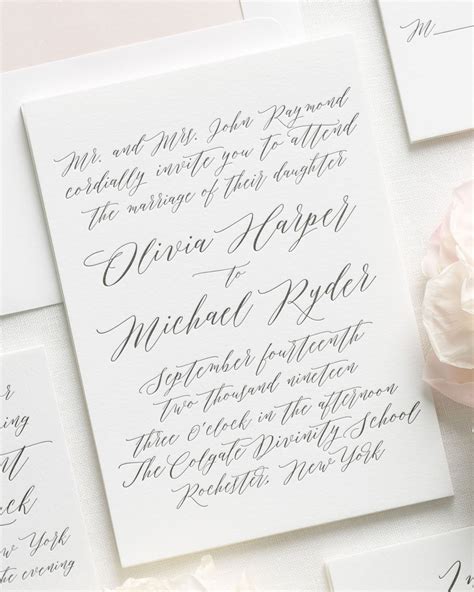 Mr. and Mrs. John Raymond
cordially invite you to attend
the marriage of their daughter
Olivia Harper
to
Michael Ryder
September fourteenth
two thousand nineteen
three o'clock in the afternoon
The Colgate Divinity School
Rochester, New York
M
York
the evening